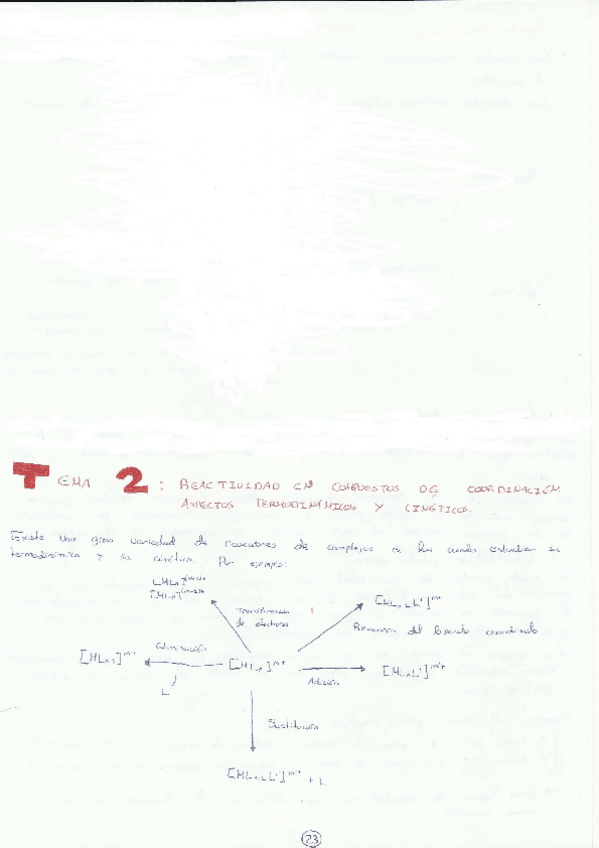 TEMA 2: REACTIVIDAD EN COMPUESTOS DE COORDINACIÓN.
ASPECTOS TERMODINÁMICOS Y CINÉTICOS.
Existe una gran variedad de reacciones de complejos en los cuales estudiar su
termodinámica y su cinética. Por ejemplo:
Transferencia
de electrones
Reacciones del ligando coordinado
Eliminación
[MLn]m+
Adición
[MLnL']m+
L
Sustitución
[MLn-1L']m+ + L
23